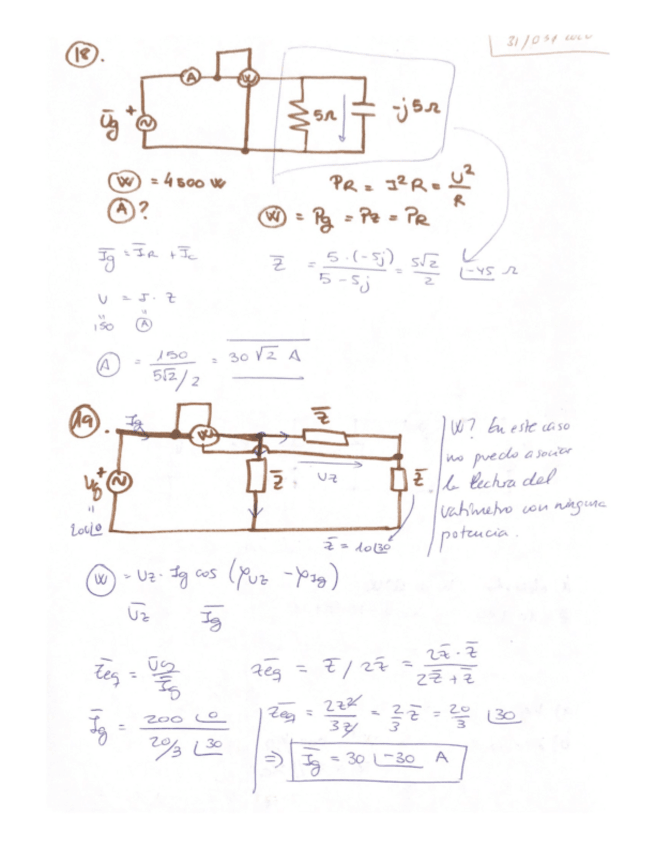 31/03/2020
18.
A
W
Ūg
+
5Ω
-j5Ω
W = 4500 W
A ?
PR = I²R = U²/R
W = Pg = Pz = PR
Īg = ĪR + Īc
Z̄ = 5·(-5j)/(5-5j) = 5√2/2 ∟-45 Ω
U = I · Z
" "
150 A
A = 150/(5√2/2) = 30√2 A
19.
Ig
W
Z̄
Ug
+
"
200∟0
Z̄
Uz
Z̄
Z̄ = 10∟30
W? En este caso
no puedo asociar
la lectura del
vatímetro con ninguna
potencia.
W = Uz · Ig cos (φUz - φIg)
Ūz Īg
Z̄eq = Ūg/Īg
Z̄eq = Z̄ / 2Z̄ = 2Z̄·Z̄/(2Z̄+Z̄)
Īg = 200∟0/(20/3∟30)
Z̄eq = 2Z²/3Z = 2/3 Z̄ = 20/3 ∟30
⇒ Īg = 30∟-30 A